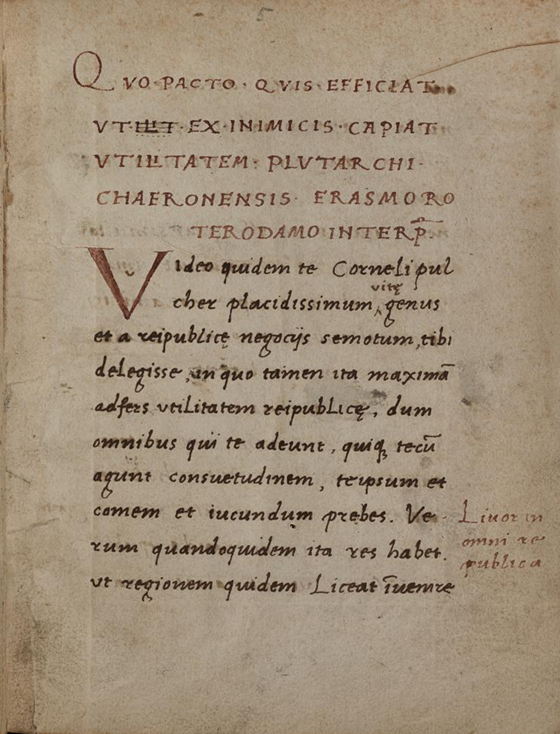 5
QVO·PACTO·QVIS·EFFICIAT
VT·EX·INIMICIS·CAPIAT
VTILITATEM·PLVTARCHI·
CHAERONENSIS·ERASMO RO
TERODAMO INTERP̄.
Video quidem te Corneli pul
vitę
cher placidissimum, genus
et a reipublicę negocijs semotum, tibi
delegisse, in quo tamen ita maximā
adfers vtilitatem reipublicę, dum
omnibus qui te adeunt, quiq̨ tecū
agunt consuetudinem, teipsum et
comem et iucundum prebes. Ve
rum quandoquidem ita res habet.
vt regionem quidem Liceat īuenire
Livor in
omni re
publica